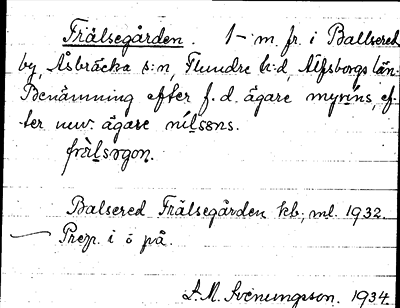 Frälsegården. 1–m. fr. i Ballsered
by, Åsbräcka s:n, Flundre h:d, Älfsborgs län.
Benämning efter f.d. ägare myrins, ef-
ter nuv. ägare nilsens.
frälsogon.
Balsered Frälsegården kb., ml. 1932.
— Prep. i o på.
D.M. Svenungsson. 1934